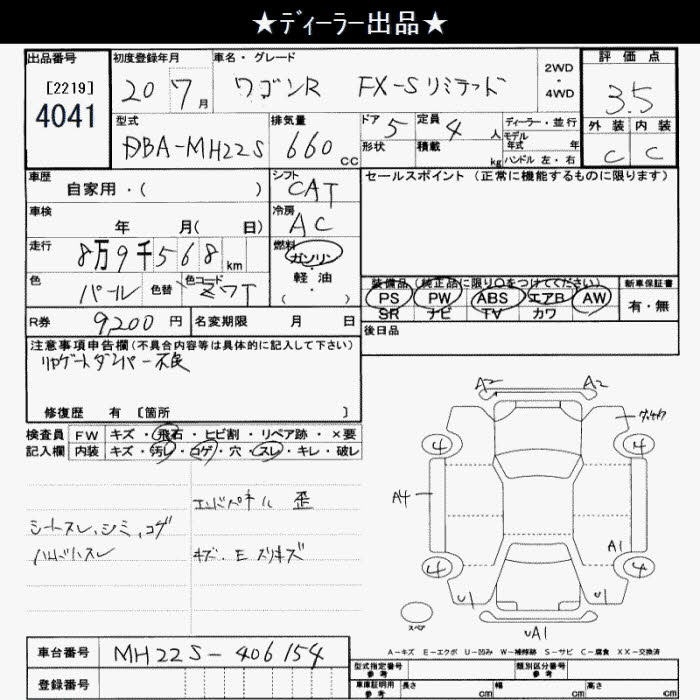 ★ディーラー出品★
出品番号 初度登録年月 車名・グレード 評価点
[2219] 20 7月 ワゴンR FX-Sリミテッド 2WD・4WD 3.5
4041 型式 排気量 ドア 5 定員 4人 ディーラー・並行 外装 内装
DBA-MH22S 660cc 形状 積載 kg モデル年式 年 ハンドル 左・右 C C
車歴 自家用・( ) シフト CAT セールスポイント (正常に機能するものに限ります)
車検 年 月( 日) 冷房 AC
走行 8万9千568km 燃料 ガソリン・軽油・( )
色 パール 色替 色コード Z7T 装備品 (純正品に限り○をつけてください) 新車保証書
PS PW ABS エアB AW 有・無
SR ナビ TV カワ
R券 9200円 名変期限 月 日 後日品
注意事項申告欄(不具合内容等は具体的に記入して下さい)
リヤゲートダンパー不良
修復歴 有 〔箇所 〕
A2 A2
検査員記入欄 FW キズ・飛石・ヒビ割・リペア跡・×要
内装 キズ・汚レ・コゲ・穴・スレ・キレ・破レ
4 4
エンドパネル 歪
シートスレ、シミ、コゲ
A4
ハンドルスレ キズ・E スリキズ
A1
4 4
U1 U1
スペア UA1
A-キズ E-エクボ U-凹み W-補修跡 S-サビ C-腐食 XX-交換済
車台番号 MH22S-406154
登録番号 型式指定番号 参考 類別区分番号 参考
車庫証明用 参考 長さ cm 幅 cm 高さ cm